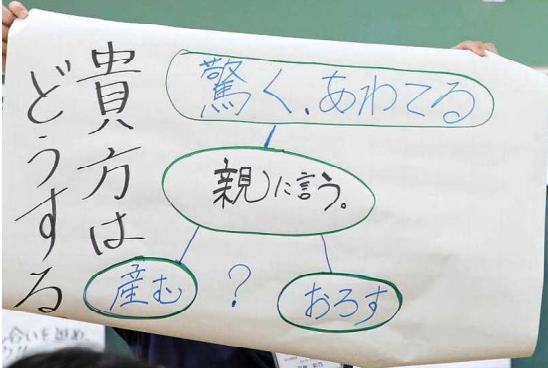 貴方は
どうする
驚く、あわてる
親に言う。
産む
?
おろす